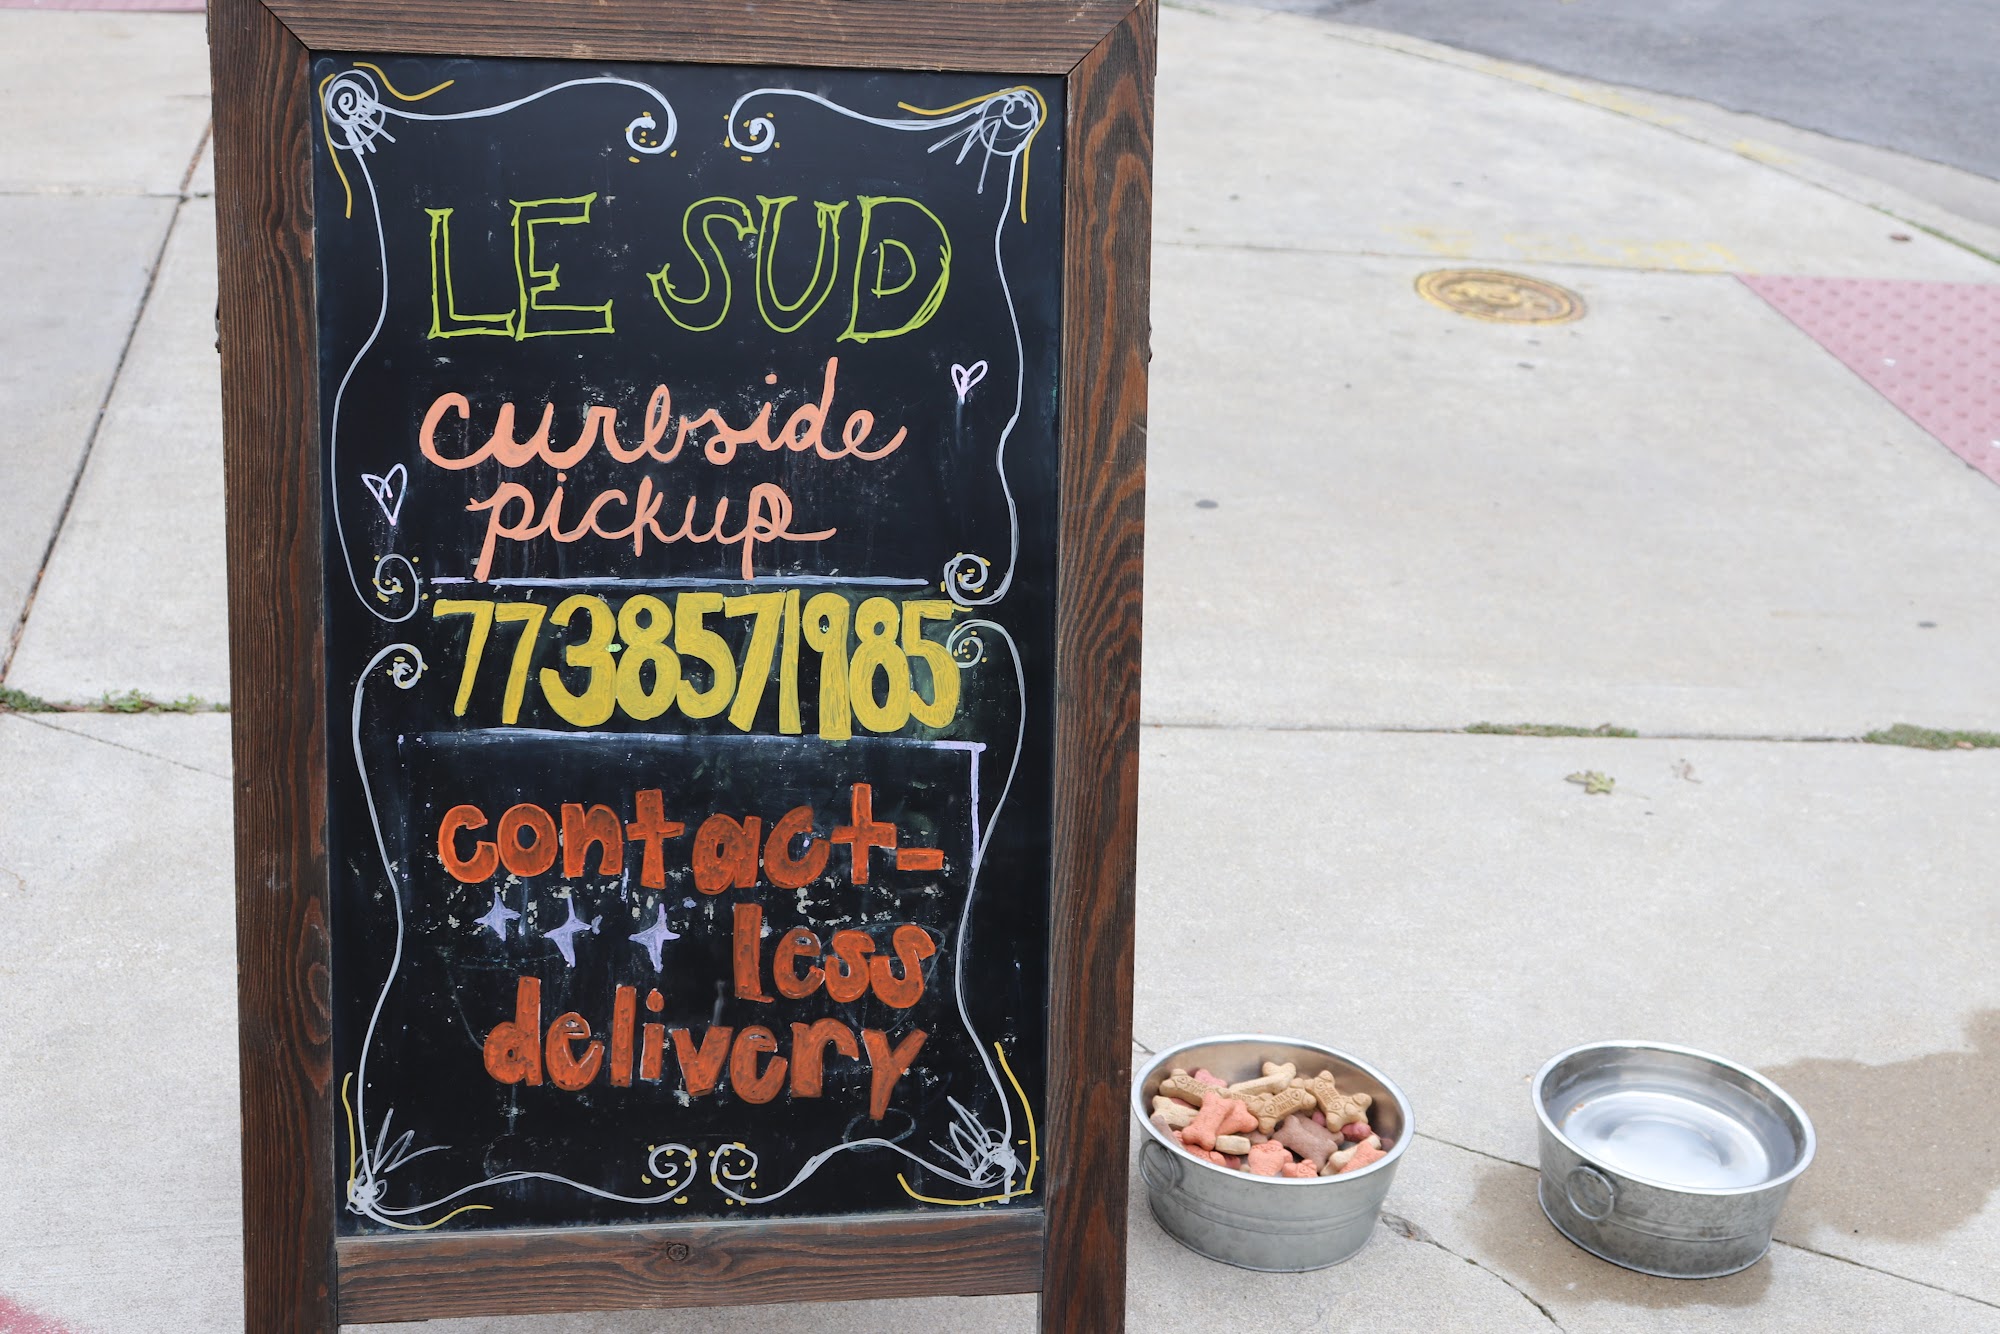 LE SUD
curbside
pickup
7738571985
contact-
less
delivery